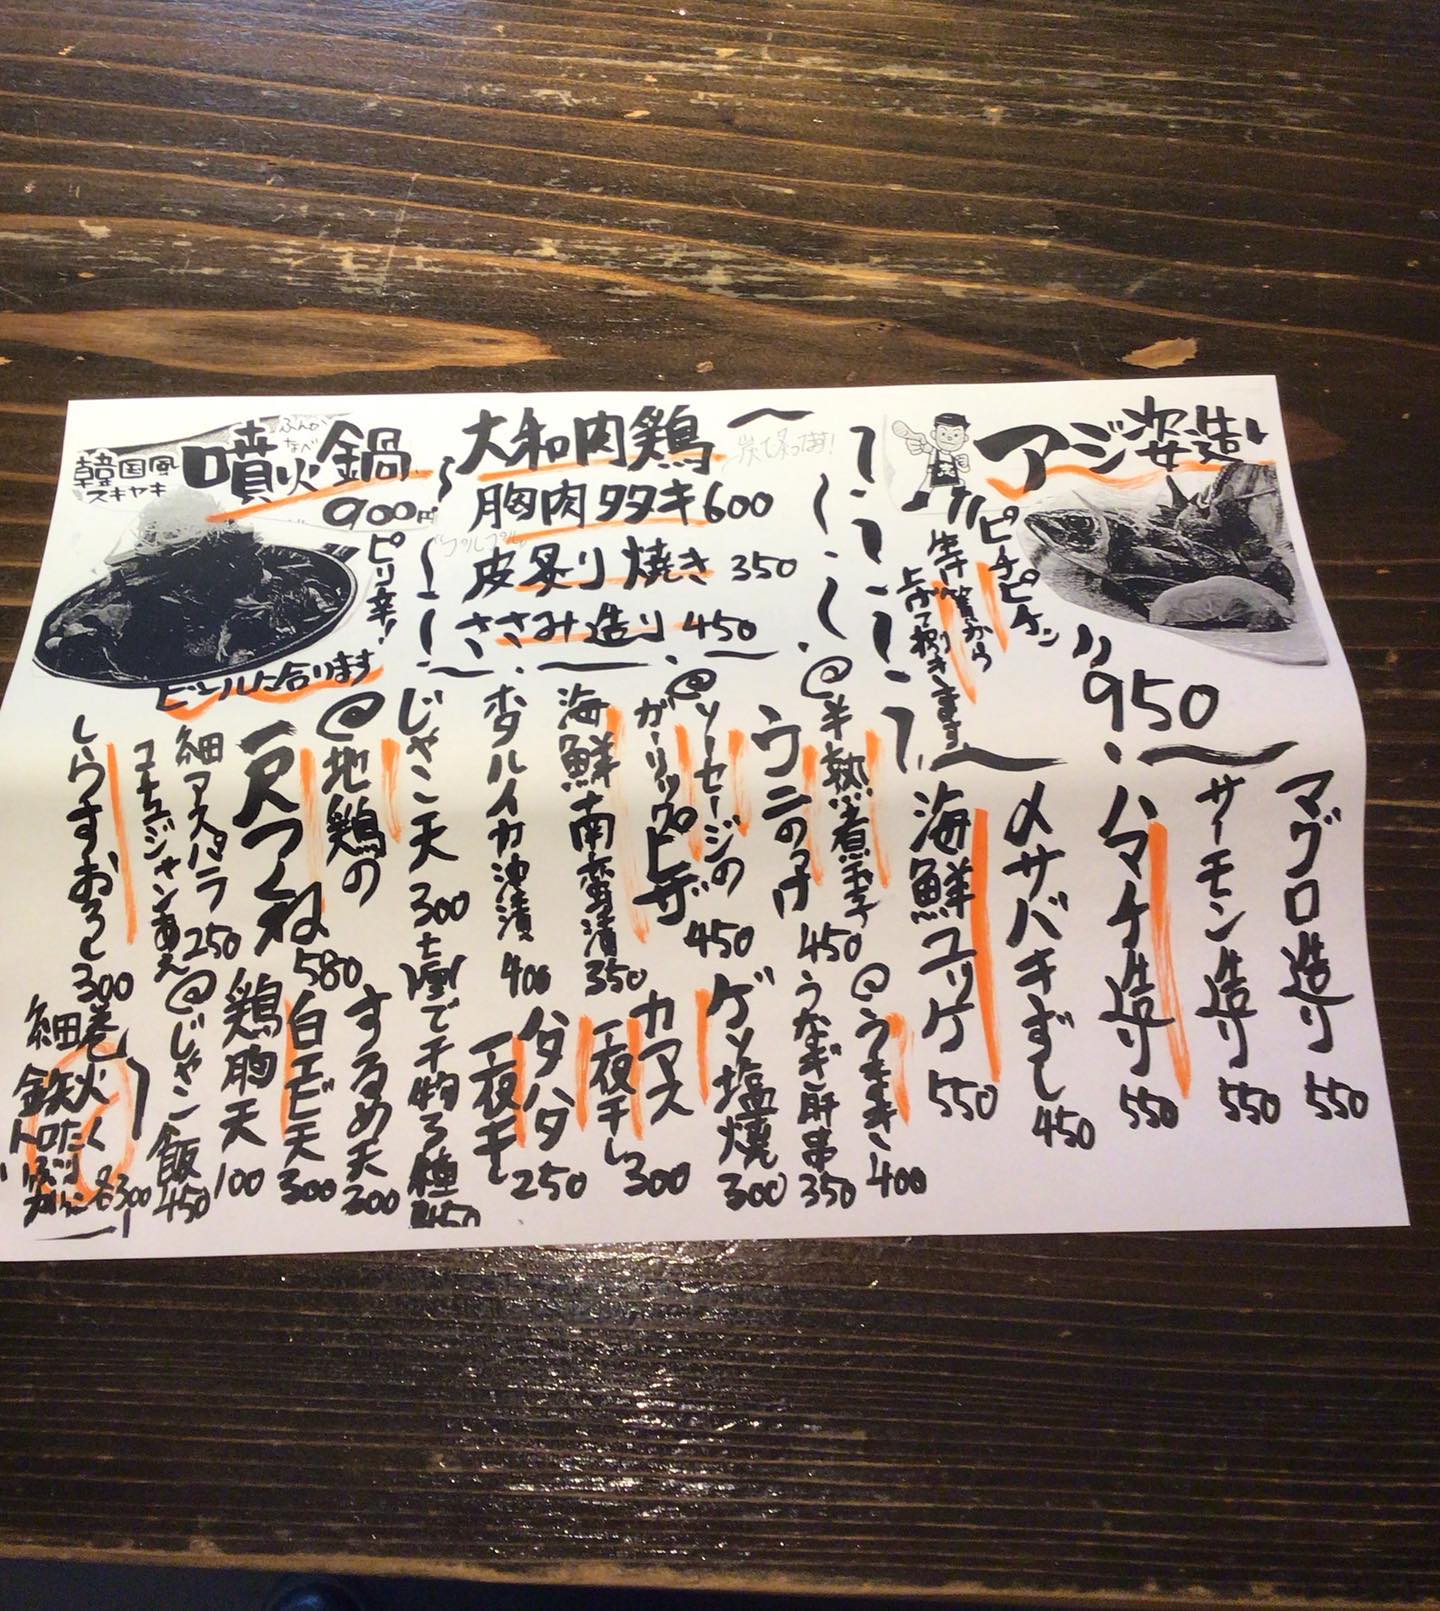 アジ姿造り
"ピチピチ"
生け簀から
上げて捌きます
950
マグロ造り 550
サーモン造り 550
ハマチ造り 550
メサバきずし 450
海鮮ユッケ 550
@半熟煮玉子
ウニのっけ 450
@ソーセージの
ガーリックピザ 450
海鮮南蛮漬 350
ホタルイカ沖漬 400
じゃこ天 300
@地鶏の
一尺つくね 580
細アスパラ
コチュジャンあえ 250
しらすおろし 300
@うまき 400
うなぎ肝串 350
ゲソ塩焼 300
カマス
一夜干し 300
ハタハタ
一夜干し 250
七厘で干物3種 450
するめ天 300
白エビ天 300
鶏胸天 100
@じゃこ飯 450
細巻
鉄火
トロたく
各300
大和肉鶏
胸肉タタキ 600
"プルプル"
皮炙り焼き 350
ささみ造り 450
韓国風
スキヤキ
ふんかなべ
噴火鍋
900円
ピリ辛!
ビールに合います